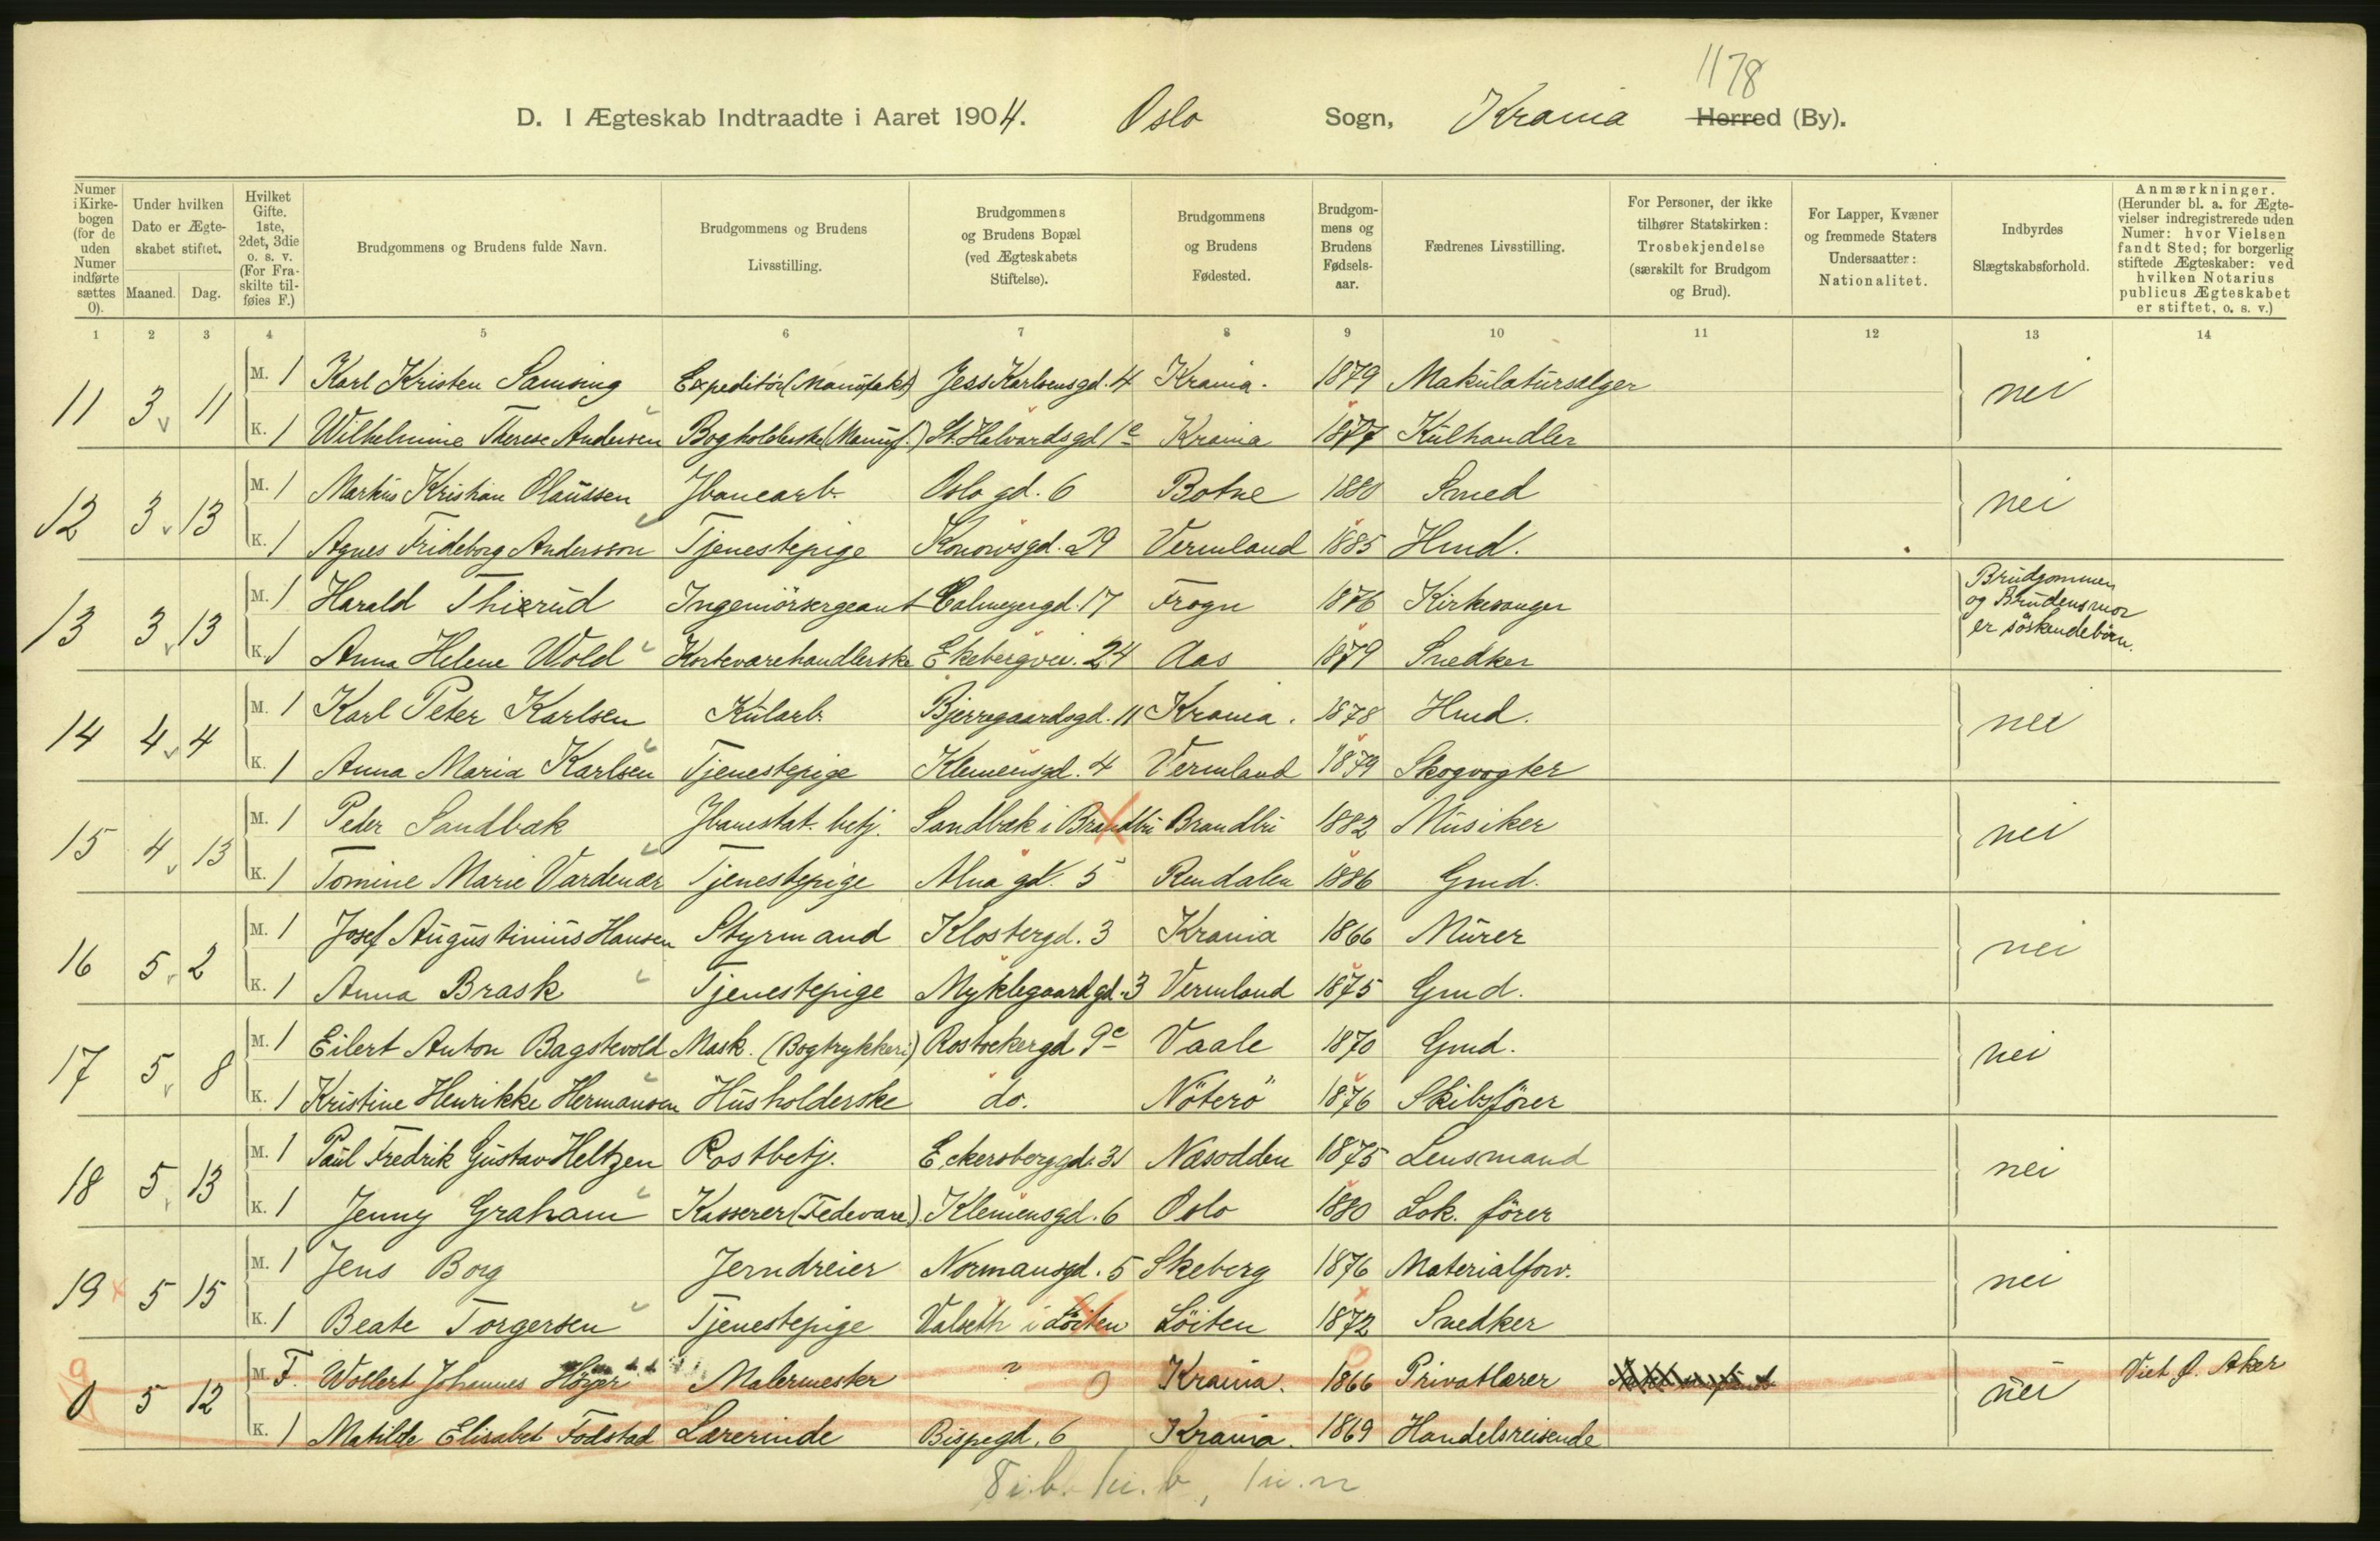 1178
D. I Ægteskab Indtraadte i Aaret 1904. Oslo Sogn, Krania Herred (By).
Numer i Kirkebogen (for de uden Numer indførte sættes 0). | Under hvilken Dato er Ægteskabet stiftet. Maaned. Dag. | Hvilket Gifte. 1ste, 2det, 3die o. s. v. (For Fraskilte tilføies F.) | Brudgommens og Brudens fulde Navn. | Brudgommens og Brudens Livsstilling. | Brudgommens og Brudens Bopæl (ved Ægteskabets Stiftelse). | Brudgommens og Brudens Fødested. | Brudgommens og Brudens Fødselsaar. | Fædrenes Livsstilling. | For Personer, der ikke tilhører Statskirken: Trosbekjendelse (særskilt for Brudgom og Brud). | For Lapper, Kvæner og fremmede Staters Undersaatter: Nationalitet. | Indbyrdes Slægtskabsforhold. | Anmærkninger. (Herunder bl. a. for Ægtevielser indregistrerede uden Numer: hvor Vielsen fandt Sted; for borgerlig stiftede Ægteskaber: ved hvilken Notarius publicus Ægteskabet er stiftet, o. s. v.)
1 2 3 4 5 6 7 8 9 10 11 12 13 14
11 3 11 M. 1 Karl Kristen Samsing Expeditör (Manufakt) Jess Karlsensgd. 4 Krania. 1879 Makulaturselger nei
K. 1 Wilhelmine Therese Andersen Bogholderske (Manuf.) St. Halvardsgd 1c Krania 1877 Kulhandler
12 3 13 M. 1 Markus Kristian Olaussen Jbanearb. Oslo gd. 6 Botne 1880 Smed nei
K. 1 Agnes Frideborg Andersson Tjenestepige Konowsgd. 29 Vermland 1885 Hmd.
13 3 13 M. 1 Harald Thierud Ingeniörsergeant Calmeyergd. 17 Frogn 1876 Kirkesanger Brudgommen og Brudens mor er söskendebörn.
K. 1 Anna Helene Wold Kortevarehandlerske Ekebergvei. 24 Aas 1879 Snedker
14 4 4 M. 1 Karl Peter Karlsen Kularb. Bjerregaardsgd. 11 Krania. 1878 Hmd. nei
K. 1 Anna Maria Karlsen Tjenestepige Klemensgd. 4 Vermland 1879 Skogvogter
15 4 13 M. 1 Peder Sandbæk Jbanestat. betj. Sandbæk i Brandbu Brandbu 1882 Musiker nei
K. 1 Tomine Marie Vardenær Tjenestepige Alna gd. 5 Rendalen 1886 Gmd.
16 5 2 M. 1 Josef Augustinius Hansen Styrmand Klostergd. 3 Krania 1866 Murer nei
K. 1 Anna Brask Tjenestepige Myklegaardgd. 3 Vermland 1875 Gmd.
17 5 8 M. 1 Eilert Anton Bagstevold Mask. (Bogtrykkeri) Rostockergd 9c Vaale 1870 Gmd. nei
K. 1 Kristine Henrikke Hermansen Husholderske do. Nöterö 1876 Skibsförer
18 5 13 M. 1 Paul Fredrik Gustav Heltzen Postbetj. Eckersberggd. 31 Næsodden 1875 Lensmand nei
K. 1 Jenny Graham Kasserer (Fedevare) Klemensgd. 6 Oslo 1880 Lok. förer
19 5 15 M. 1 Jens Borg Jerndreier Normansgd. 5 Skeberg 1876 Materialforv. nei
K. 1 Beate Torgersen Tjenestepige Valseth i Löiten Löiten 1872 Snedker
0 5 12 M. F. Wollert Johannes Malermester ? 0 Krania. 1866 Privatlærer nei Viet Ø. Aker
K. 1 Matilde Elisabet Fodstad Lærerinde Bispegd. 6 Krania. 1869 Handelsreisende
8 i.b. 1 u.b, 1 u.n